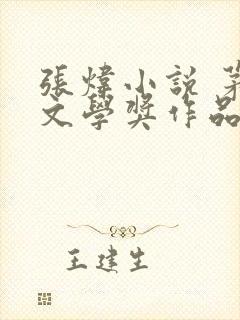 張煒小說 茅
文學獎作品
王建生